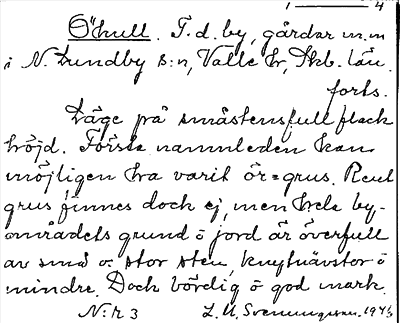 1 — 4
Öhull. F. d. by, gårdar m. m
i N. Lundby s:n, Valle hr, Skb. län.
forts.
Läge på småstensfull flack
höjd. Förste namnleden kan
möjligen ha varit ör = grus. Rent
grus finnes dock ej, men hela by-
områdets grund o jord är överfull
av små o. stor sten, knytnävstor o
mindre. Dock bördig o god mark.
N:r 3 L. M. Svenungsson. 194